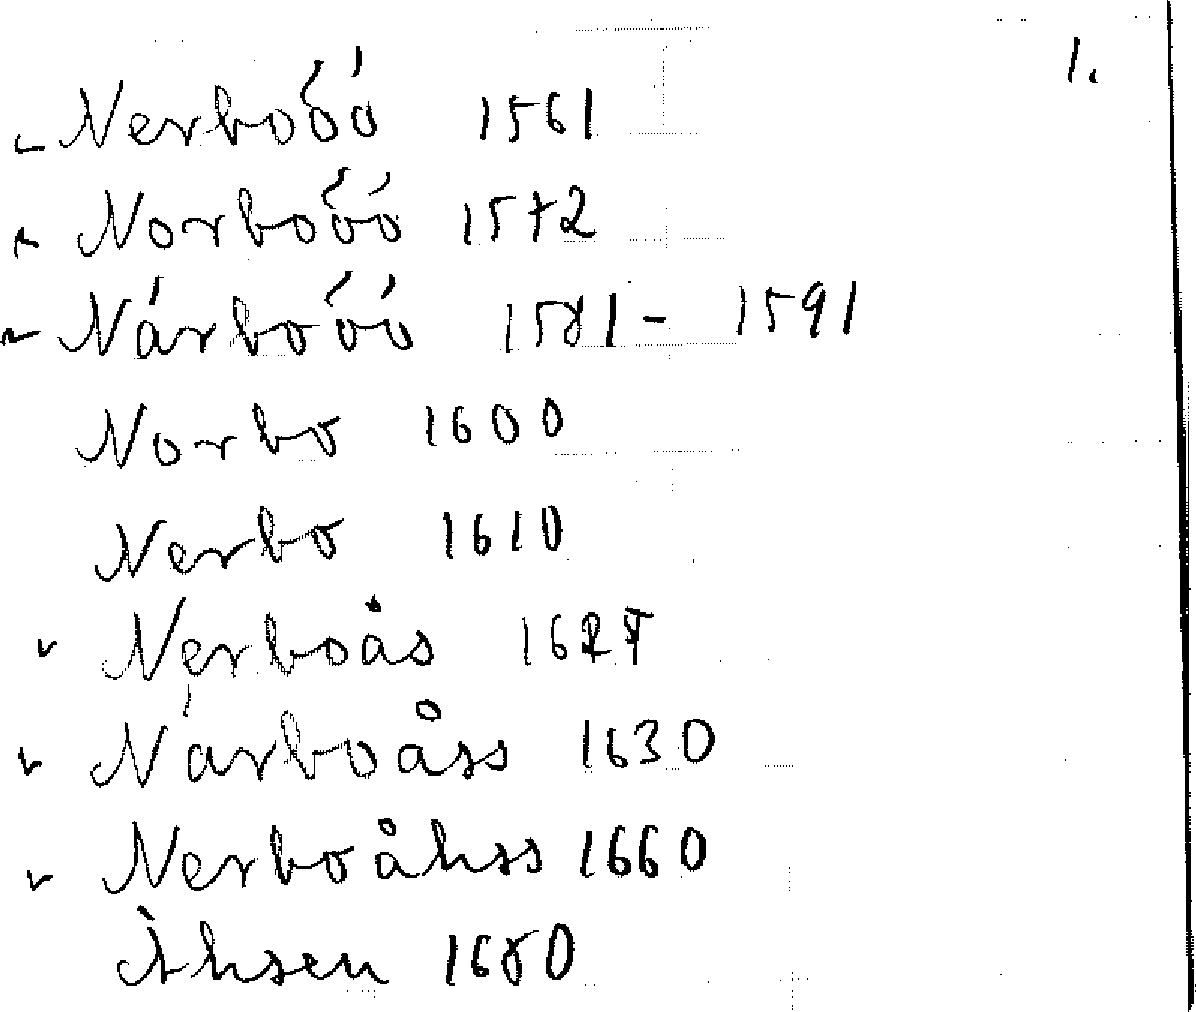 1.
Nerboóó 1561
Norboóó 1572
Nárboóó 1581 - 1591
Norbo 1600
Nerbo 1610
Nerboås
Nárboåss 1630
Nerboåhss 1660
Åhsen 1680